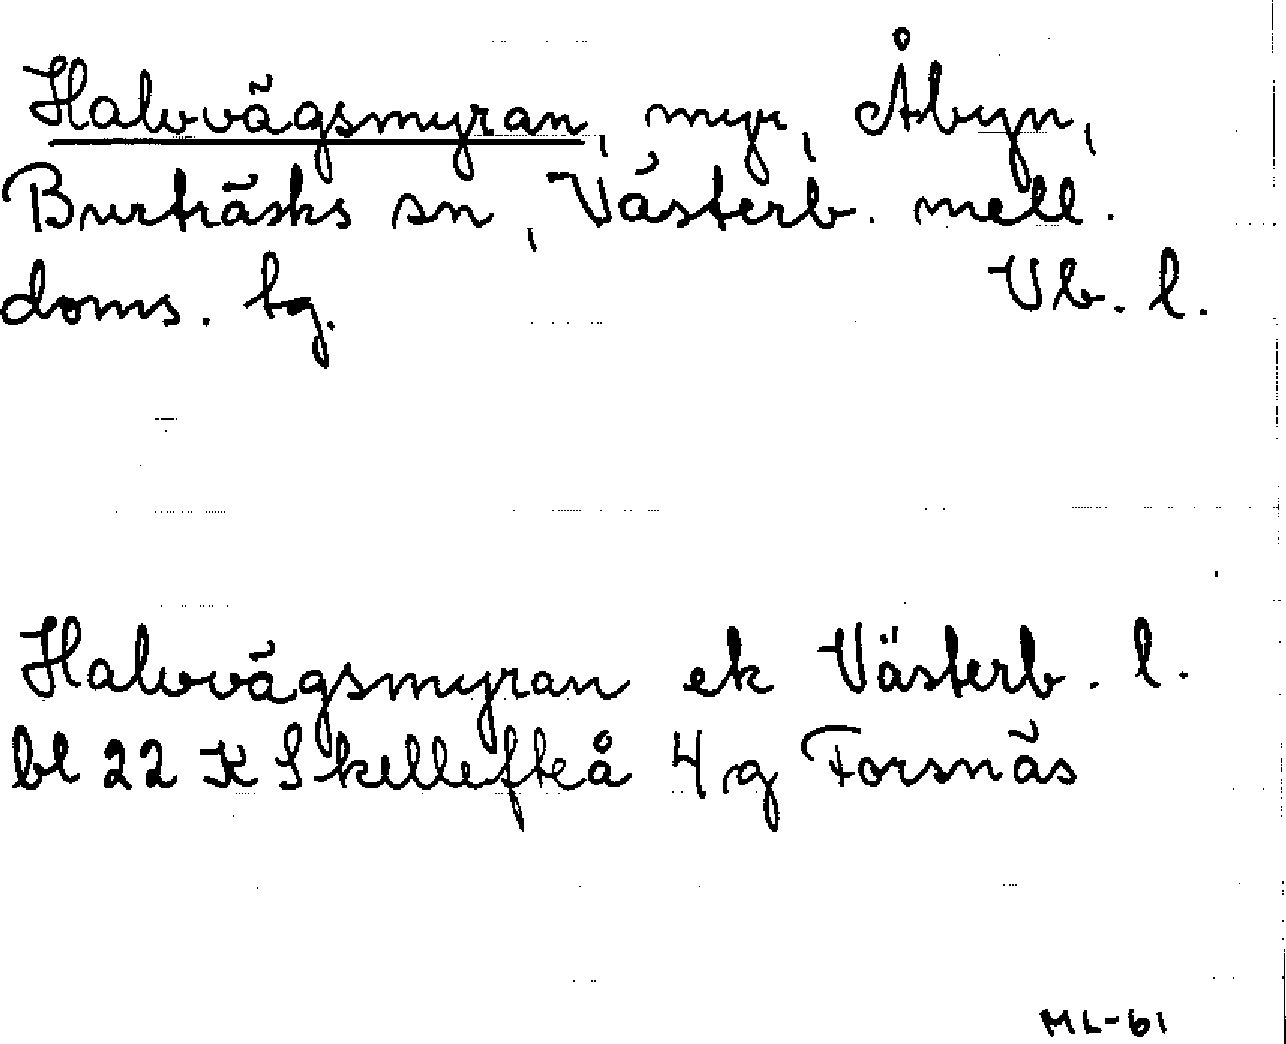 Halvvägsmyran, myr, Åbyn,
Burträsks sn, Västerb. mell.
doms. bg. Vb. l.
Halvvägsmyran ek Västerb. l.
bl 22 K Skellefteå 4 g Forsnäs
ML-61